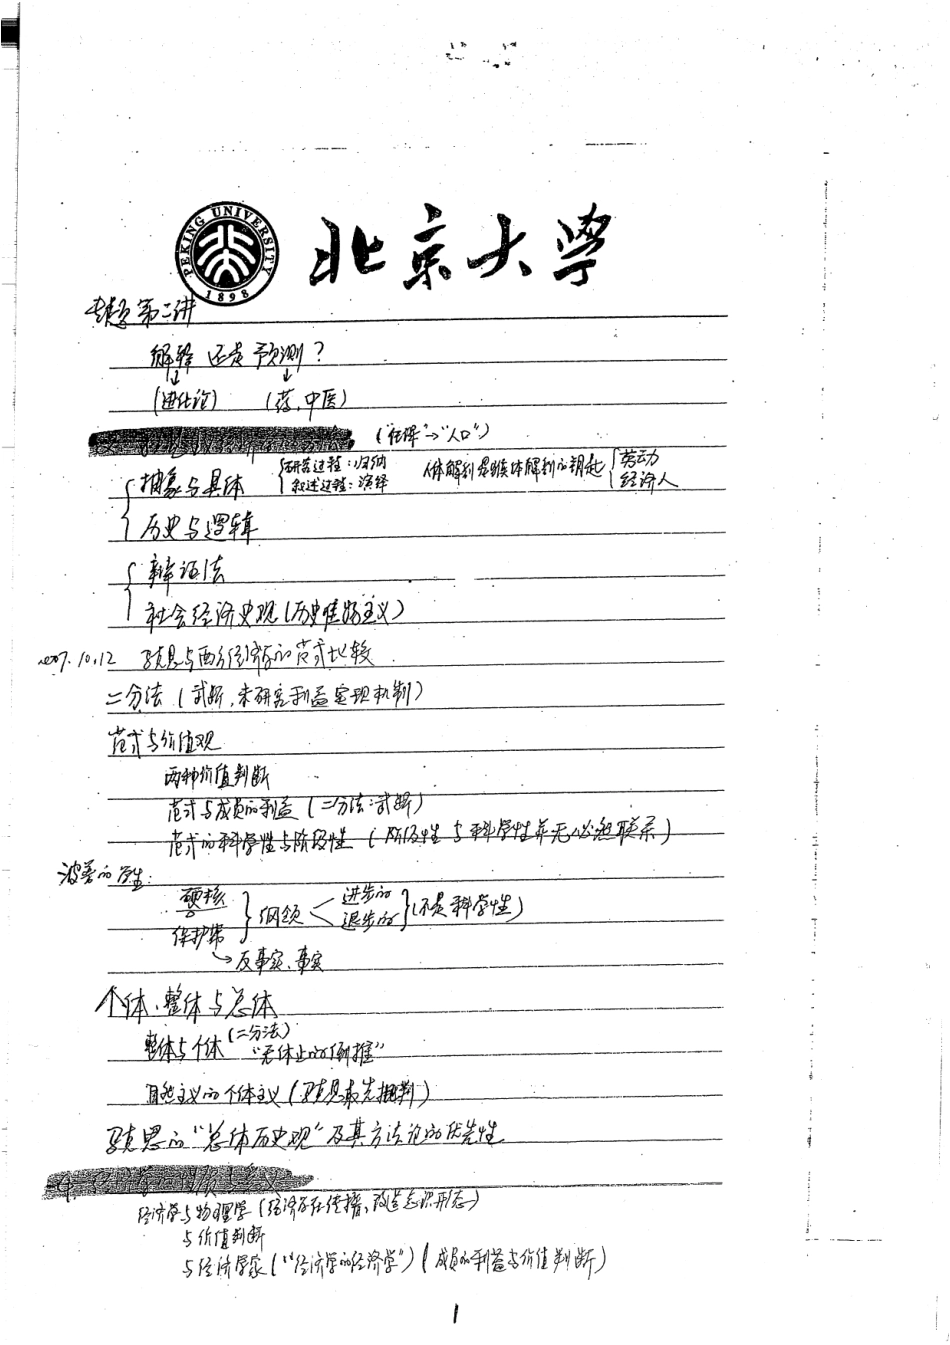 PEKING UNIVERSITY 1898
北京大学
专题第二讲
解释还是预测?
(进化论) (药,中医)
("“人口”)
抽象与具体 {研究过程:归纳 叙述过程:演绎 人体解剖是猴体解剖的钥匙 {劳动 经济人
历史与逻辑
辩证法
社会经济史观(历史唯物主义)
2007.10.12 马克思与西方经济学的范式比较
二分法(武断,未研究利益实现机制)
范式与价值观
两种价值判断
范式与成员的利益(二分法:武断)
范式的科学性与阶级性(阶级性与科学性并无必然联系)
波普的学生:
硬核
保护带 } 纲领 < 进步的 退步的 } (不是科学性)
→反事实、事实
个体、整体与总体
整体与个体(二分法)“无休止的倒推”
自然主义的个体主义(马克思最先批判)
马克思的“总体历史观”及其方法论的优先性
经济学与物理学(经济存在传播,改造意识形态)
与价值判断
与经济学家(“经济学的经济学”)(成员的利益与价值判断)
1